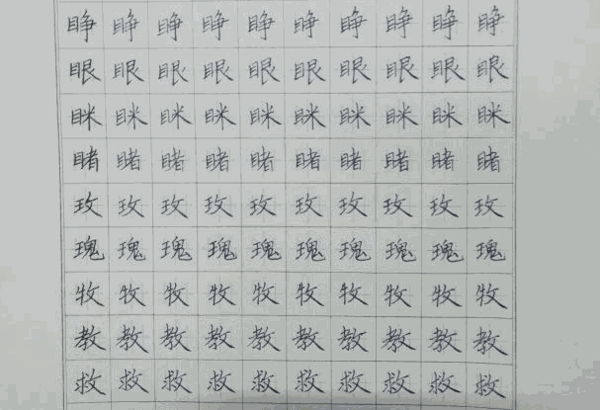 睁睁睁睁睁睁睁睁睁睁
眼眼眼眼眼眼眼眼眼眼
眯眯眯眯眯眯眯眯眯眯
睹睹睹睹睹睹睹睹睹睹
玫玫玫玫玫玫玫玫玫玫
瑰瑰瑰瑰瑰瑰瑰瑰瑰瑰
牧牧牧牧牧牧牧牧牧牧
教教教教教教教教教教
救救救救救救救救救救